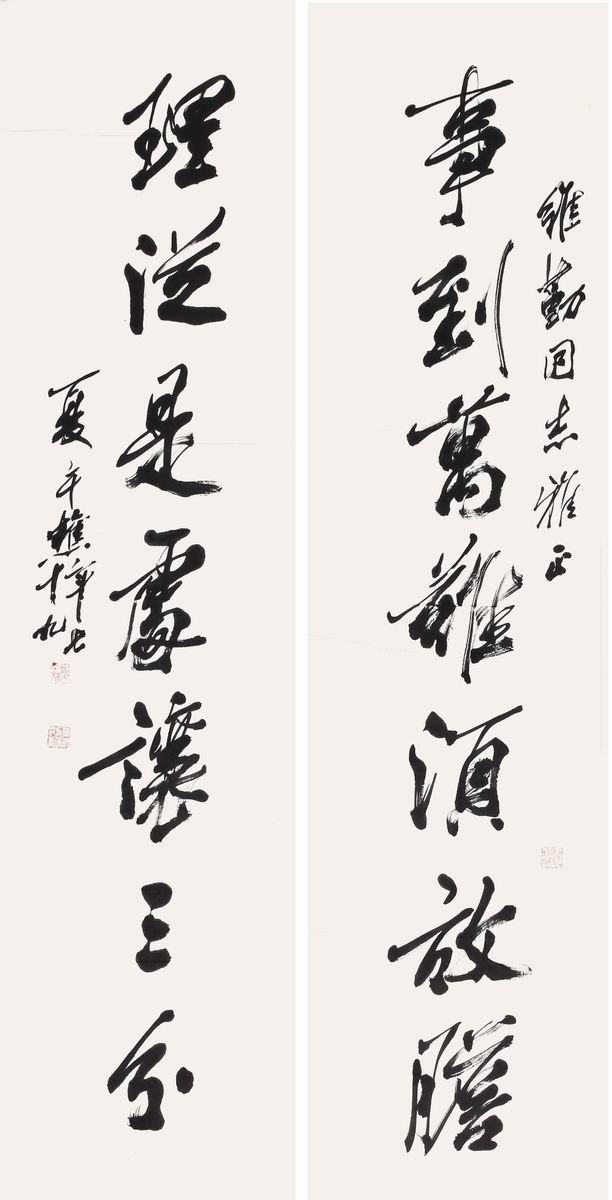 維勤同志雅正
事到萬難須放膽
理從是處讓三分
夏